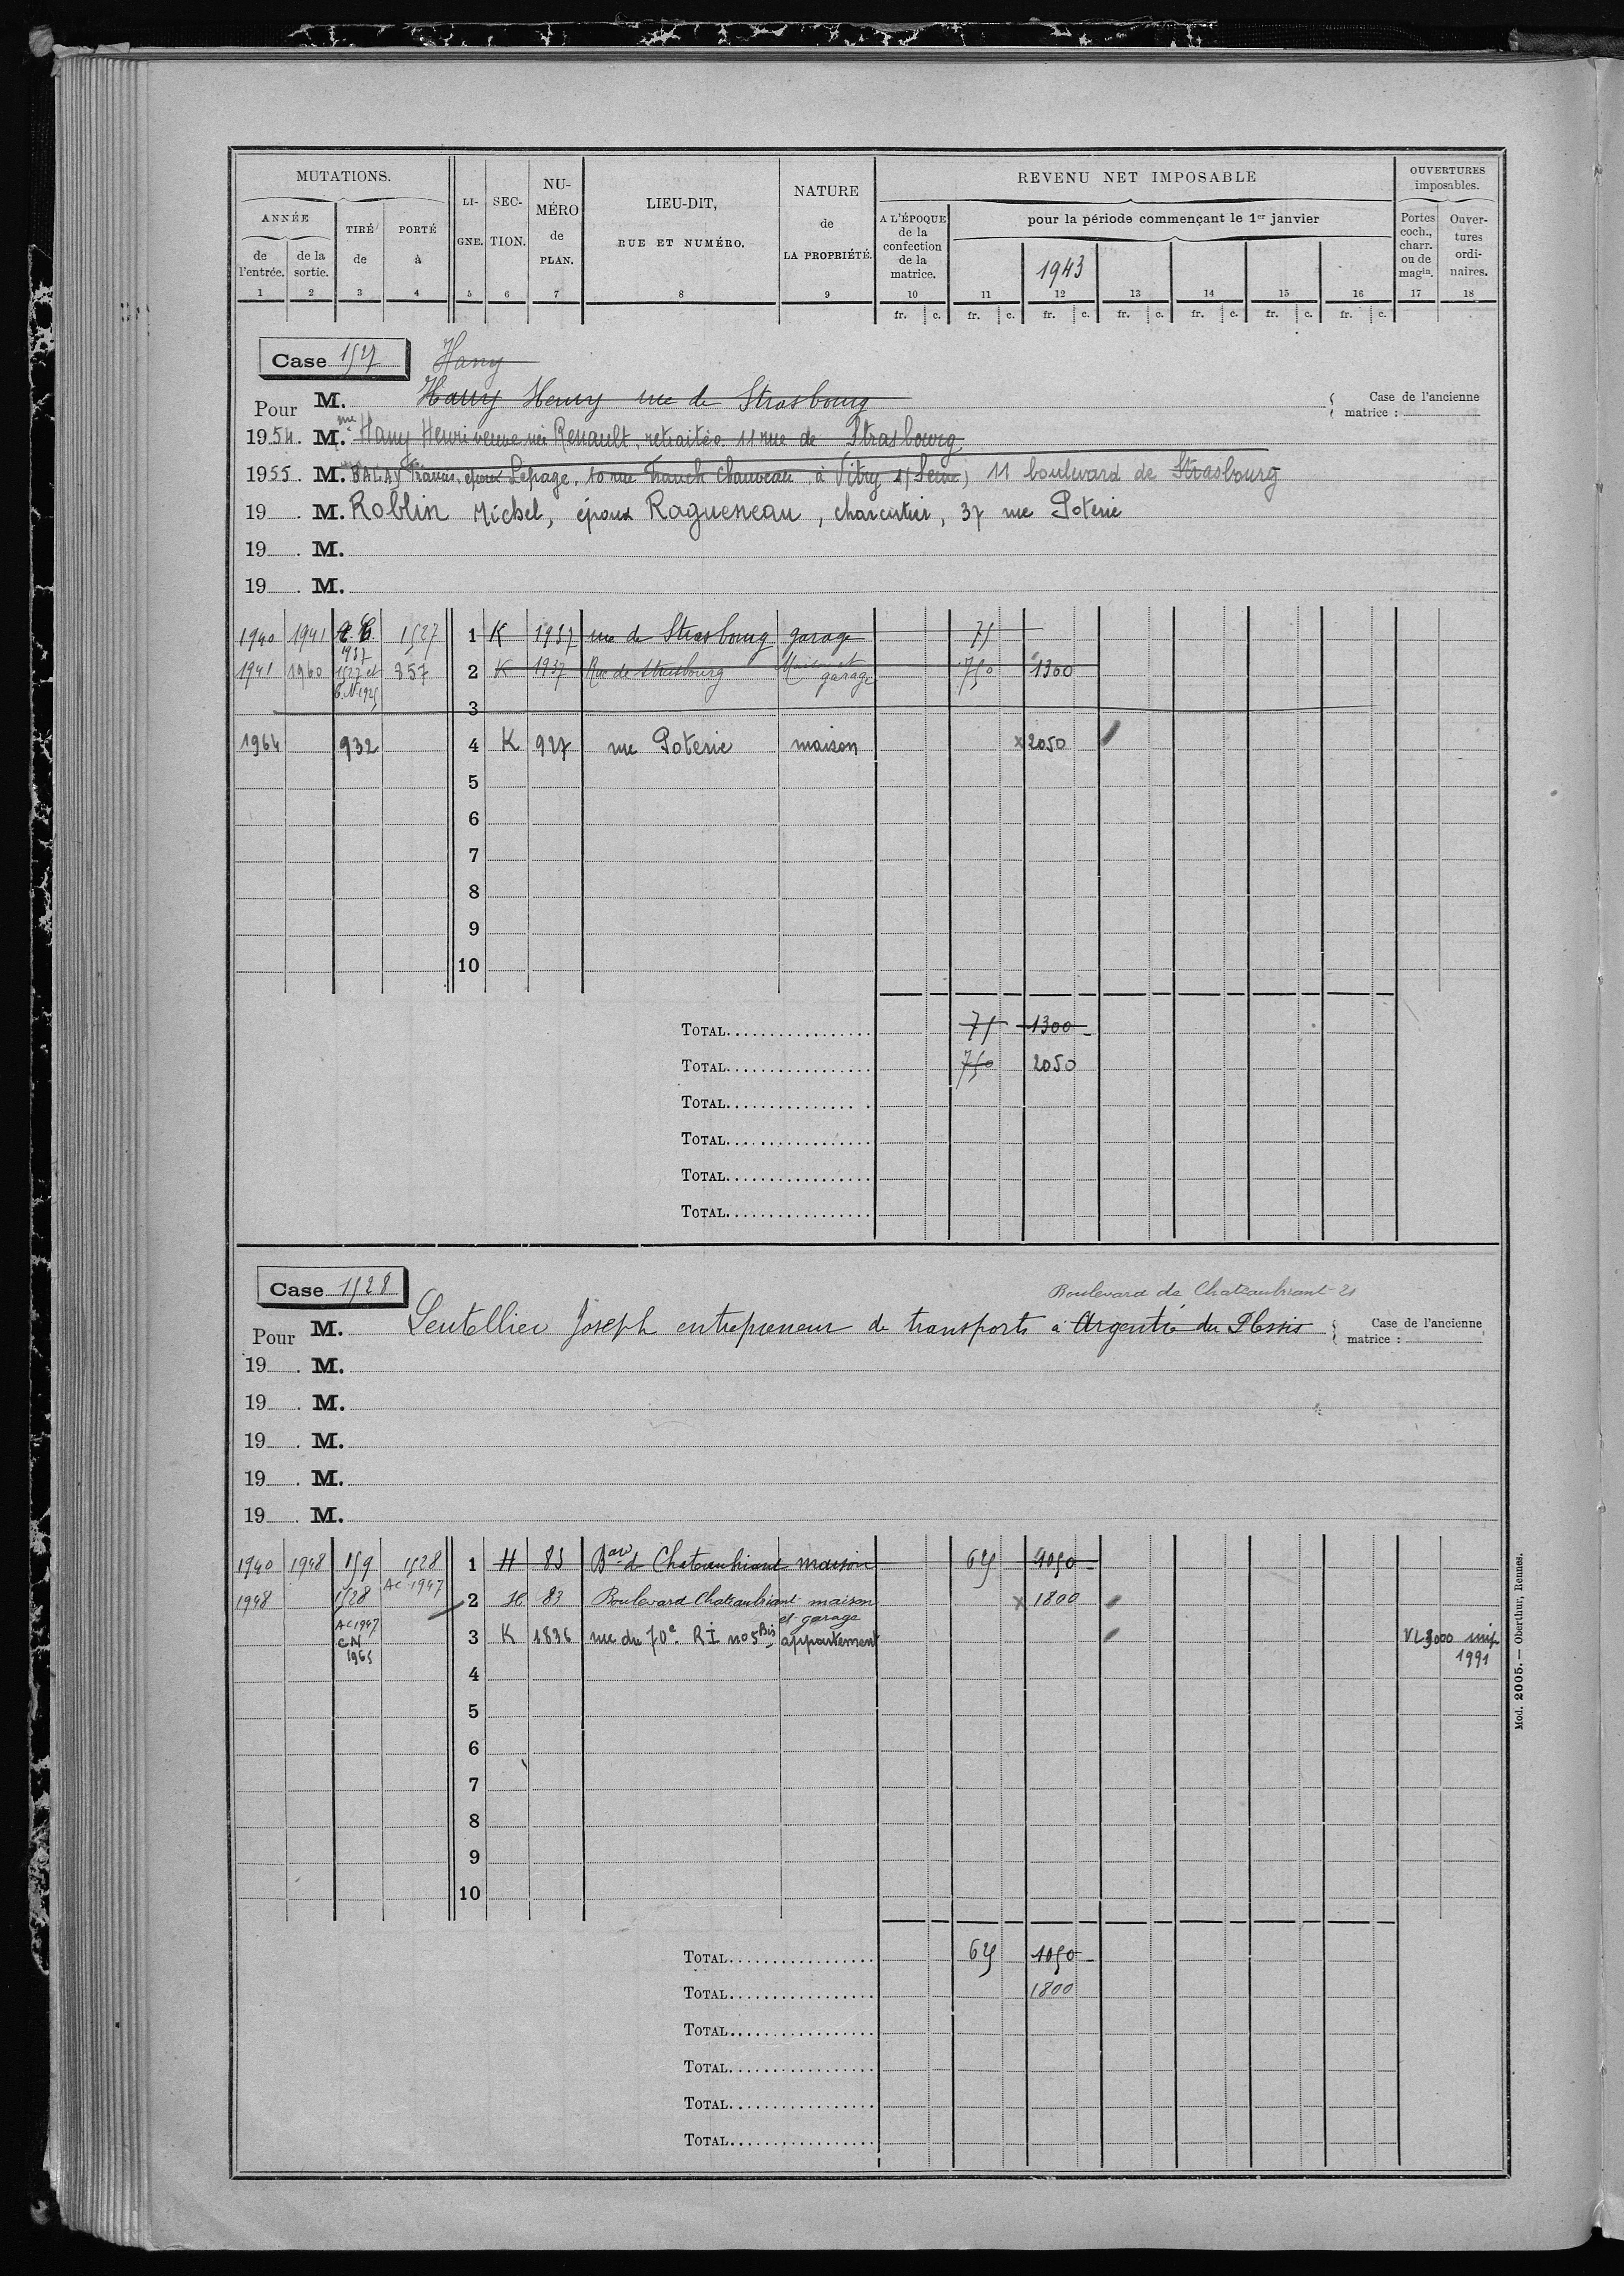 MUTATIONS. LI-GNE. SEC-TION. NU-MÉRO de PLAN. LIEU-DIT, RUE ET NUMÉRO. NATURE de LA PROPRIÉTÉ. REVENU NET IMPOSABLE OUVERTURES imposables.
ANNÉE TIRÉ de PORTÉ à A L'ÉPOQUE de la confection de la matrice. pour la période commençant le 1er janvier Portes coch., charr. ou de magin. Ouver-tures ordi-naires.
de l'entrée. de la sortie. 1943
1 2 3 4 5 6 7 8 9 10 11 12 13 14 15 16 17 18
fr. c. fr. c. fr. c. fr. c. fr. c. fr. c. fr. c.
Case 1527 Hany
Pour M. Hany Henry rue de Strasbourg Case de l'ancienne matrice :
1954. M.me Hany Henri veuve née Renault, retraitée 11 rue de Strasbourg
1955. M. BALAY Francis, époux Lepage, 10 rue Franck Chauveau, à Vitry s/Seine, 11 boulevard de Strasbourg
19 . M. Roblin Michel, époux Ragueneau, charcutier, 37 rue Poterie
19 . M.
19 . M.
1940 1941 1527 1 K 1937 rue de Strasbourg garage 75
1941 1960 1527 et C.N 1925 857 2 K 1937 Rue de Strasbourg Maison et garage 750 1300
3
1964 932 4 K 927 rue Poterie maison x 2050
5
6
7
8
9
10
TOTAL 75 1300
TOTAL 750 2050
TOTAL
TOTAL
TOTAL
TOTAL
Case 1528 Boulevard de Chateaubriant 21
Pour M. Lentellier Joseph entrepreneur de transports à Argentré du Plessis Case de l'ancienne matrice :
19 . M.
19 . M.
19 . M.
19 . M.
19 . M.
1940 1948 159 1528 1 H 83 Bard de Chateaubriant maison 625 1050
1948 1528 AC 1947 2 H 83 Boulevard Chateaubriant maison et garage x 1800
AC 1947 CN 1965 3 K 1836 rue du 70e RI no 5 Bis appartement VL 3000 imp 1991
4
5
6
7
8
9
10
TOTAL 625 1050
TOTAL 1800
TOTAL
TOTAL
TOTAL
TOTAL
Mod. 2005. — Oberthur, Rennes.